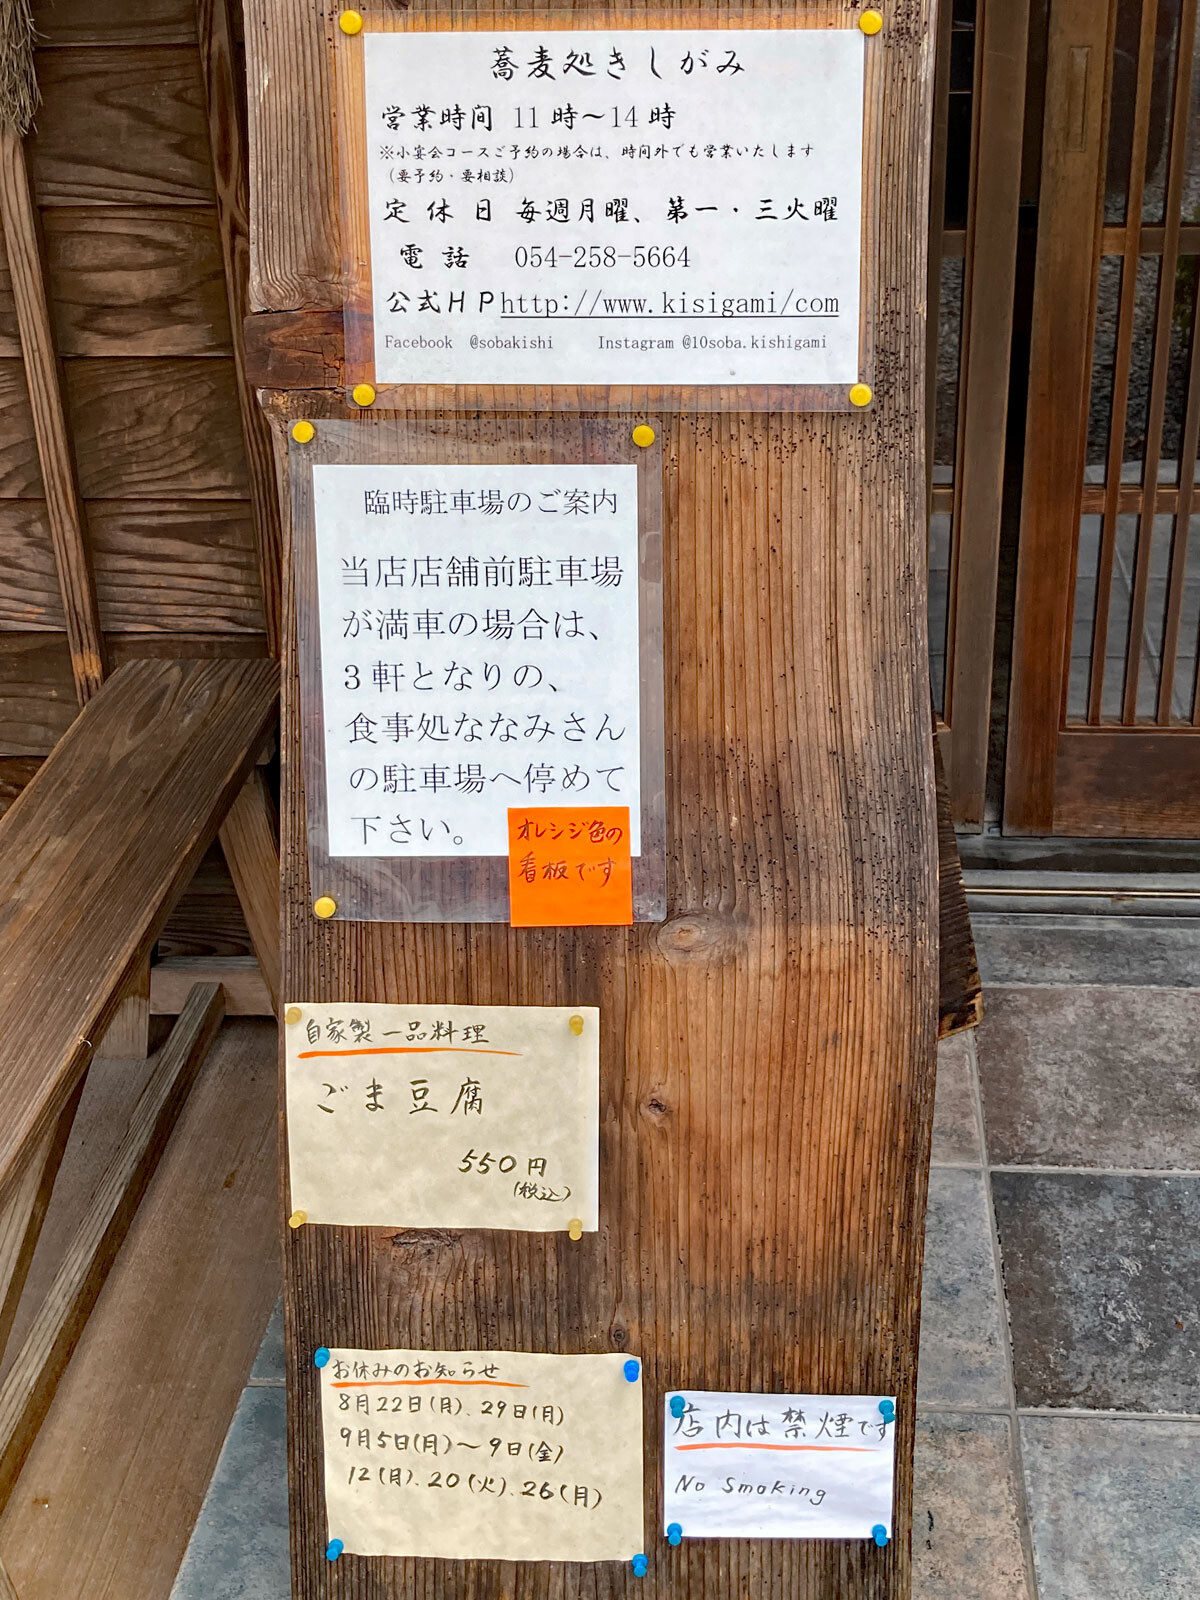 蕎麦処きしがみ
営業時間 11時～14時
※小宴会コースご予約の場合は、時間外でも営業いたします
（要予約・要相談）
定休日 毎週月曜、第一・三火曜
電話 054-258-5664
公式ＨＰhttp://www.kisigami/com
Facebook @sobakishi Instagram @10soba.kishigami
臨時駐車場のご案内
当店店舗前駐車場
が満車の場合は、
３軒となりの、
食事処ななみさん
の駐車場へ停めて
下さい。
オレンジ色の
看板です
自家製一品料理
ごま豆腐
550円
(税込)
お休みのお知らせ
8月22日(月)、29日(月)
9月5日(月)～9日(金)
12(月)、20(火)、26(月)
店内は禁煙です
No Smoking